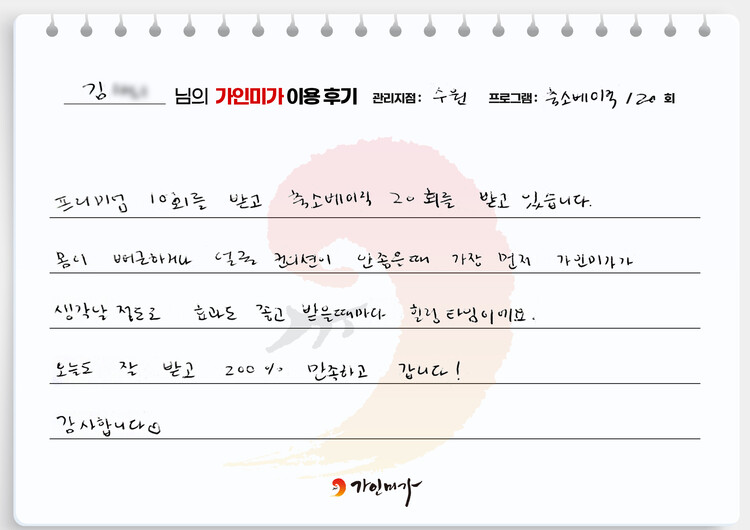 김 님의 가인미가 이용 후기 관리지점: 수원 프로그램: 축소베이직 / 20 회
프리미엄 10회를 받고 축소베이직 20회를 받고 있습니다.
몸이 뻐근하거나 얼굴 컨디션이 안좋을때 가장 먼저 가인미가가
생각날 정도로 효과도 좋고 받을때마다 힐링 타임이예요.
오늘도 잘 받고 200% 만족하고 갑니다!
감사합니다
가인미가